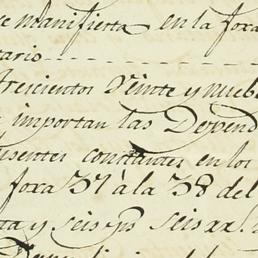 e manifiesta en la foxa
tario
trescientos Veinte y nueb
y importan las Depend
usentes constantes en los
foxa 37 à la 38 del
ta y seis ps seis rr.
Dependi